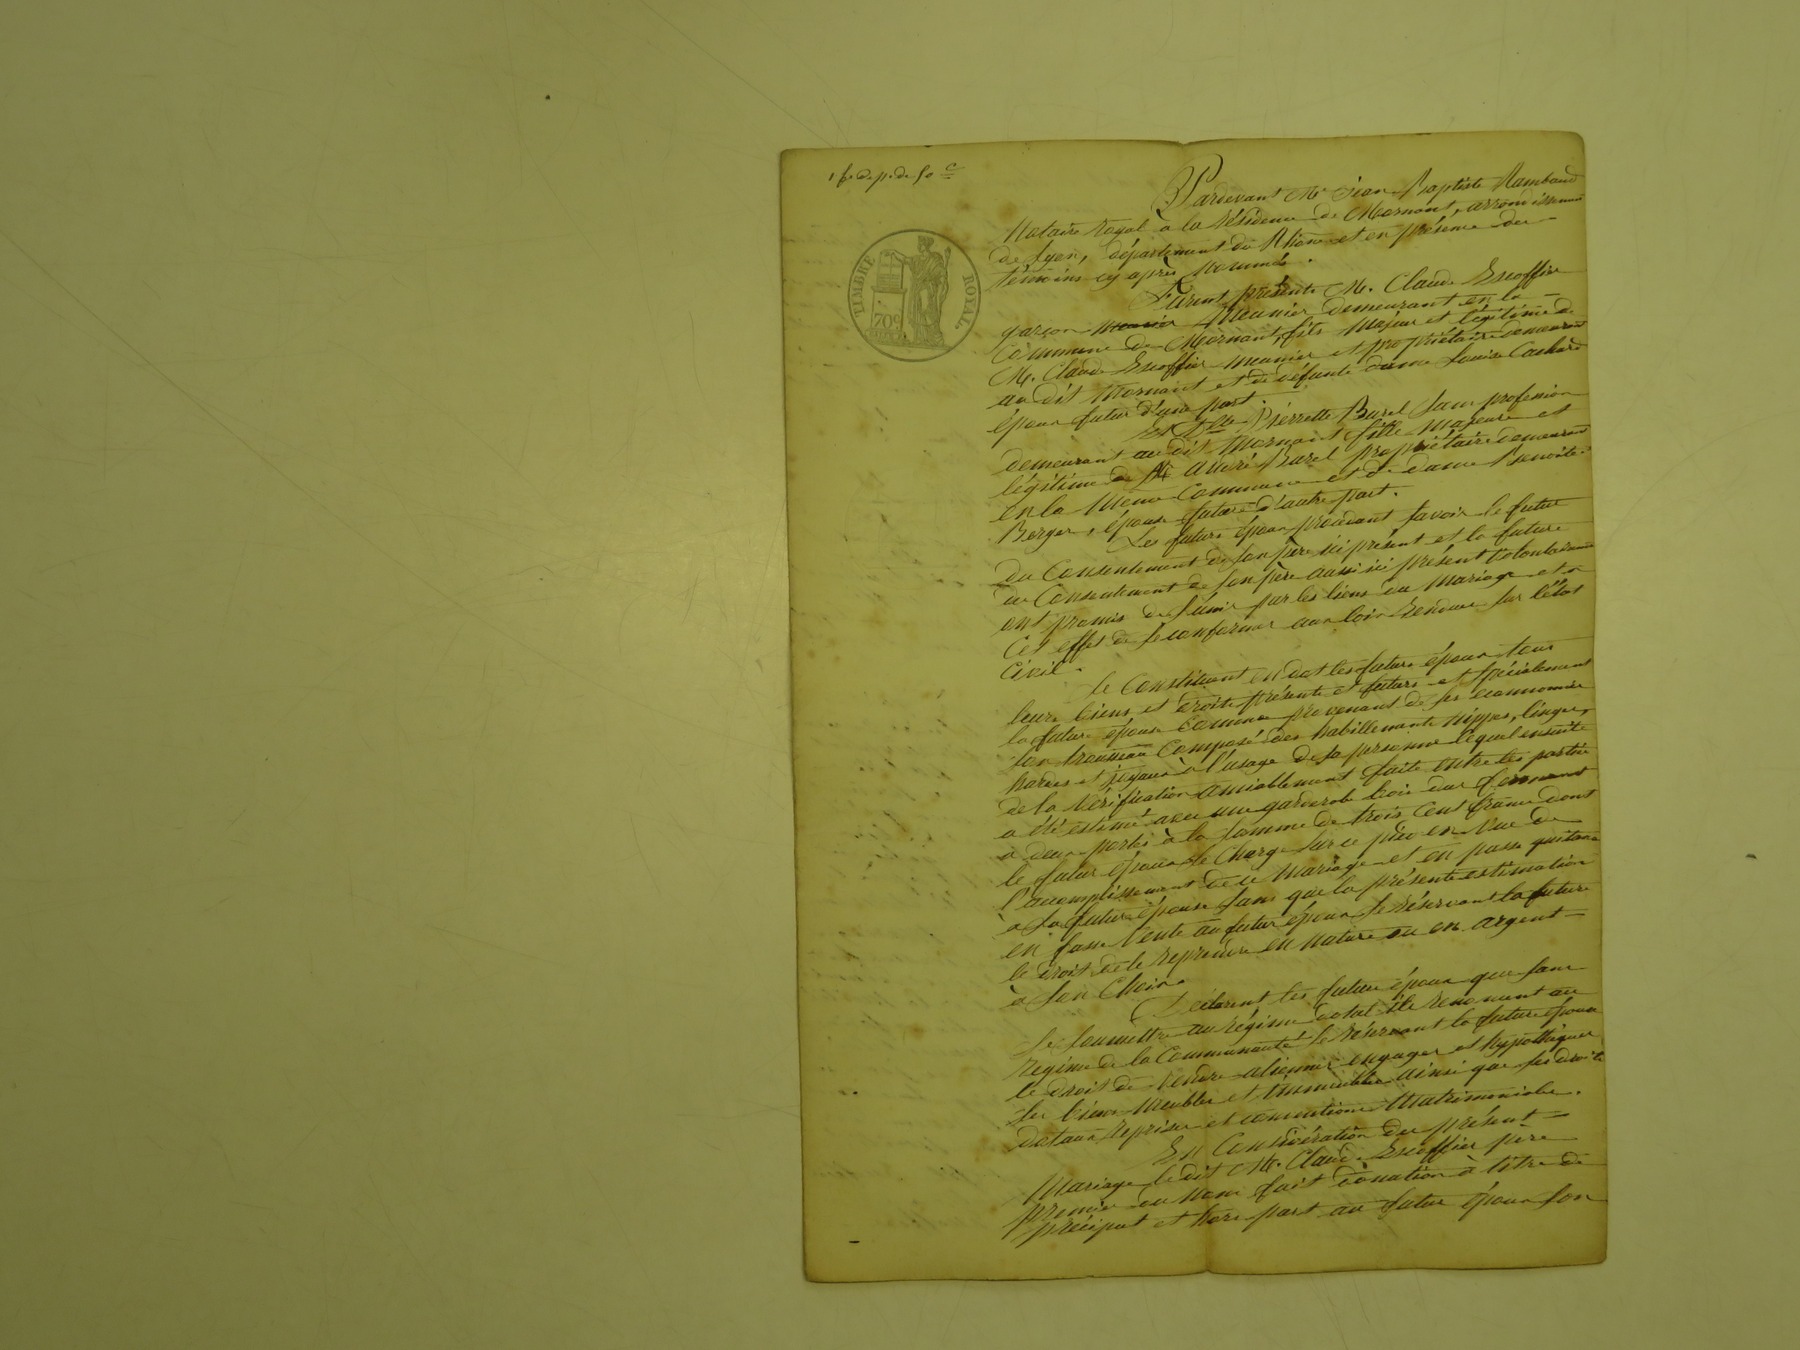 1 f. de p. de 50 c
TIMBRE ROYAL
70c
Pardevant Me Jean Baptiste Rambaud
Notaire Royal a la résidence de Mornant, arrondissement
de Lyon, département du Rhône et en présence des
témoins cy après nommés.
Furent présents M. Claude Escoffier
garçon meunier demeurant en la
Commune de Mornant, fils majeur et légitime de
M. Claude Escoffier meunier et propriétaire demeurant
au dit Mornant et de défunte dame Louise
époux futur d'une part.
Et Dlle Pierrette Burel sans profession
demeurant au dit Mornant fille majeure et
légitime de M. André Burel propriétaire demeurant
en la même Commune et de dame Benoite
Berger, épouse future d'autre part.
Les futurs époux procédant savoir le futur
du Consentement de son père ici présent et la future
du Consentement de son père aussi ici présent volontairement
ont promis de s'unir par les liens du mariage et a
Cet effet de se conformer aux loix rendues sur l'état
Civil.
se Constituent en dot les futurs époux tous
leurs biens et droits présents et futurs et spécialement
la future épouse comme provenant de ses économies
son trousseau Composé des habillements nippes, linges,
hardes et joyaux à l'usage de sa personne lequel ensuite
de la Vérification amiablement faite entre les parties
a été estimé avec une garderobe bois dur fermant
a deux portes à la somme de trois Cent francs dont
le futur époux se Charge sur ce pied en Vue de
l'accomplissement de ce Mariage et en passe quittance
à sa future épouse sans que la présente estimation
en fasse Vente au futur époux se réservant la future
le droit de le reprendre en nature ou en argent
à son Choix.
Déclarent les futurs époux que sans
se soumettre au régime dotal ils renoncent au
régime de la Communauté se réservant la future épouse
le droit de Vendre aliener engager et hypothéquer
ses biens meubles et immeubles ainsi que ses droits
dotaux reprises et conventions Matrimoniales.
En Considération du présent
Mariage le dit M. Claude Escoffier père
premier du nom fait donation à titre de
préciput et hors part au futur époux son